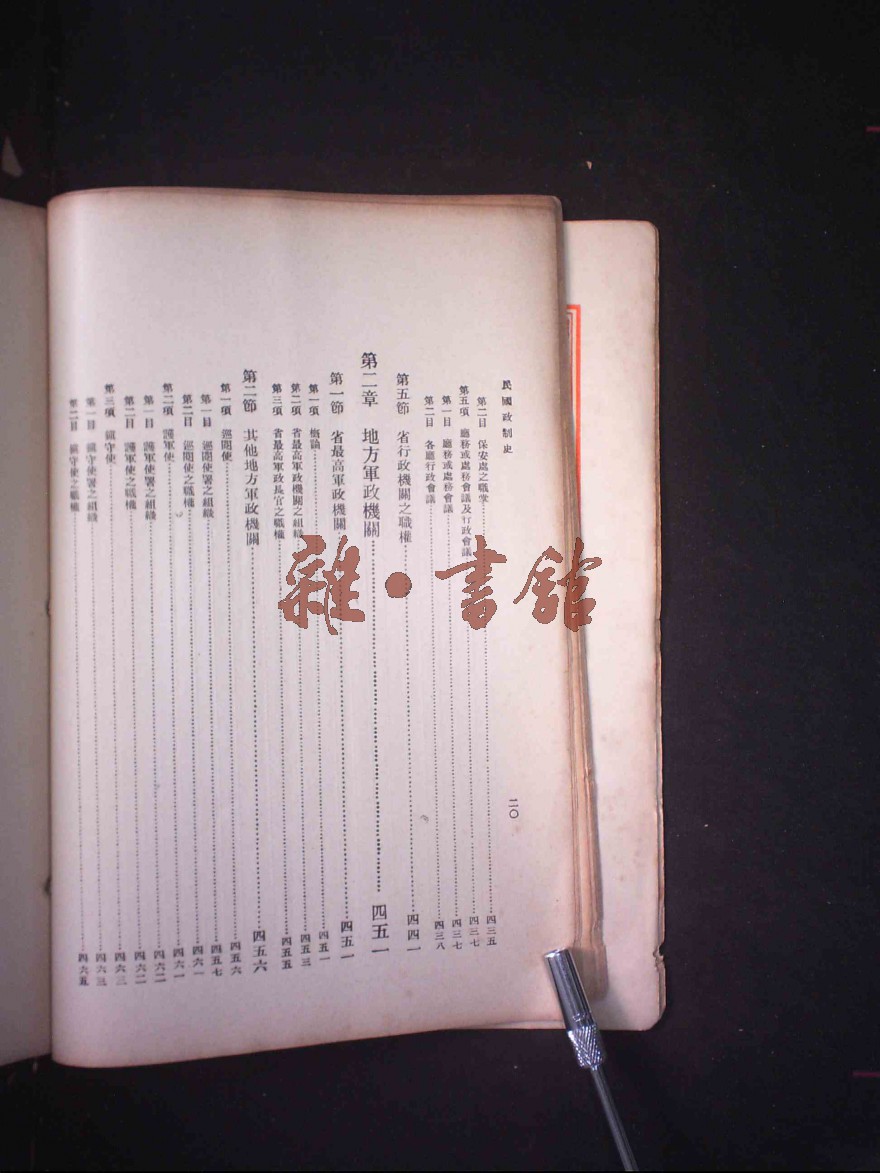 民國政制史
二〇
第二目 保安處之職掌 四三五
第五項 廳務或處務會議及行政會議 四三七
第一目 廳務或處務會議 四三七
第二目 各廳行政會議 四三八
第五節 省行政機關之職權 四四一
第二章 地方軍政機關 四五一
第一節 省最高軍政機關 四五一
第一項 概論 四五一
第二項 省最高軍政機關之組織 四五三
第三項 省最高軍政長官之職權 四五五
第二節 其他地方軍政機關 四五六
第一項 巡閱使 四五六
第一目 巡閱使署之組織 四五七
第二目 巡閱使之職權 四六一
第二項 護軍使 四六一
第一目 護軍使署之組織 四六二
第二目 護軍使之職權 四六二
第三項 鎮守使 四六三
第一目 鎮守使署之組織 四六三
第二目 鎮守使之職權 四六五
雜·書館